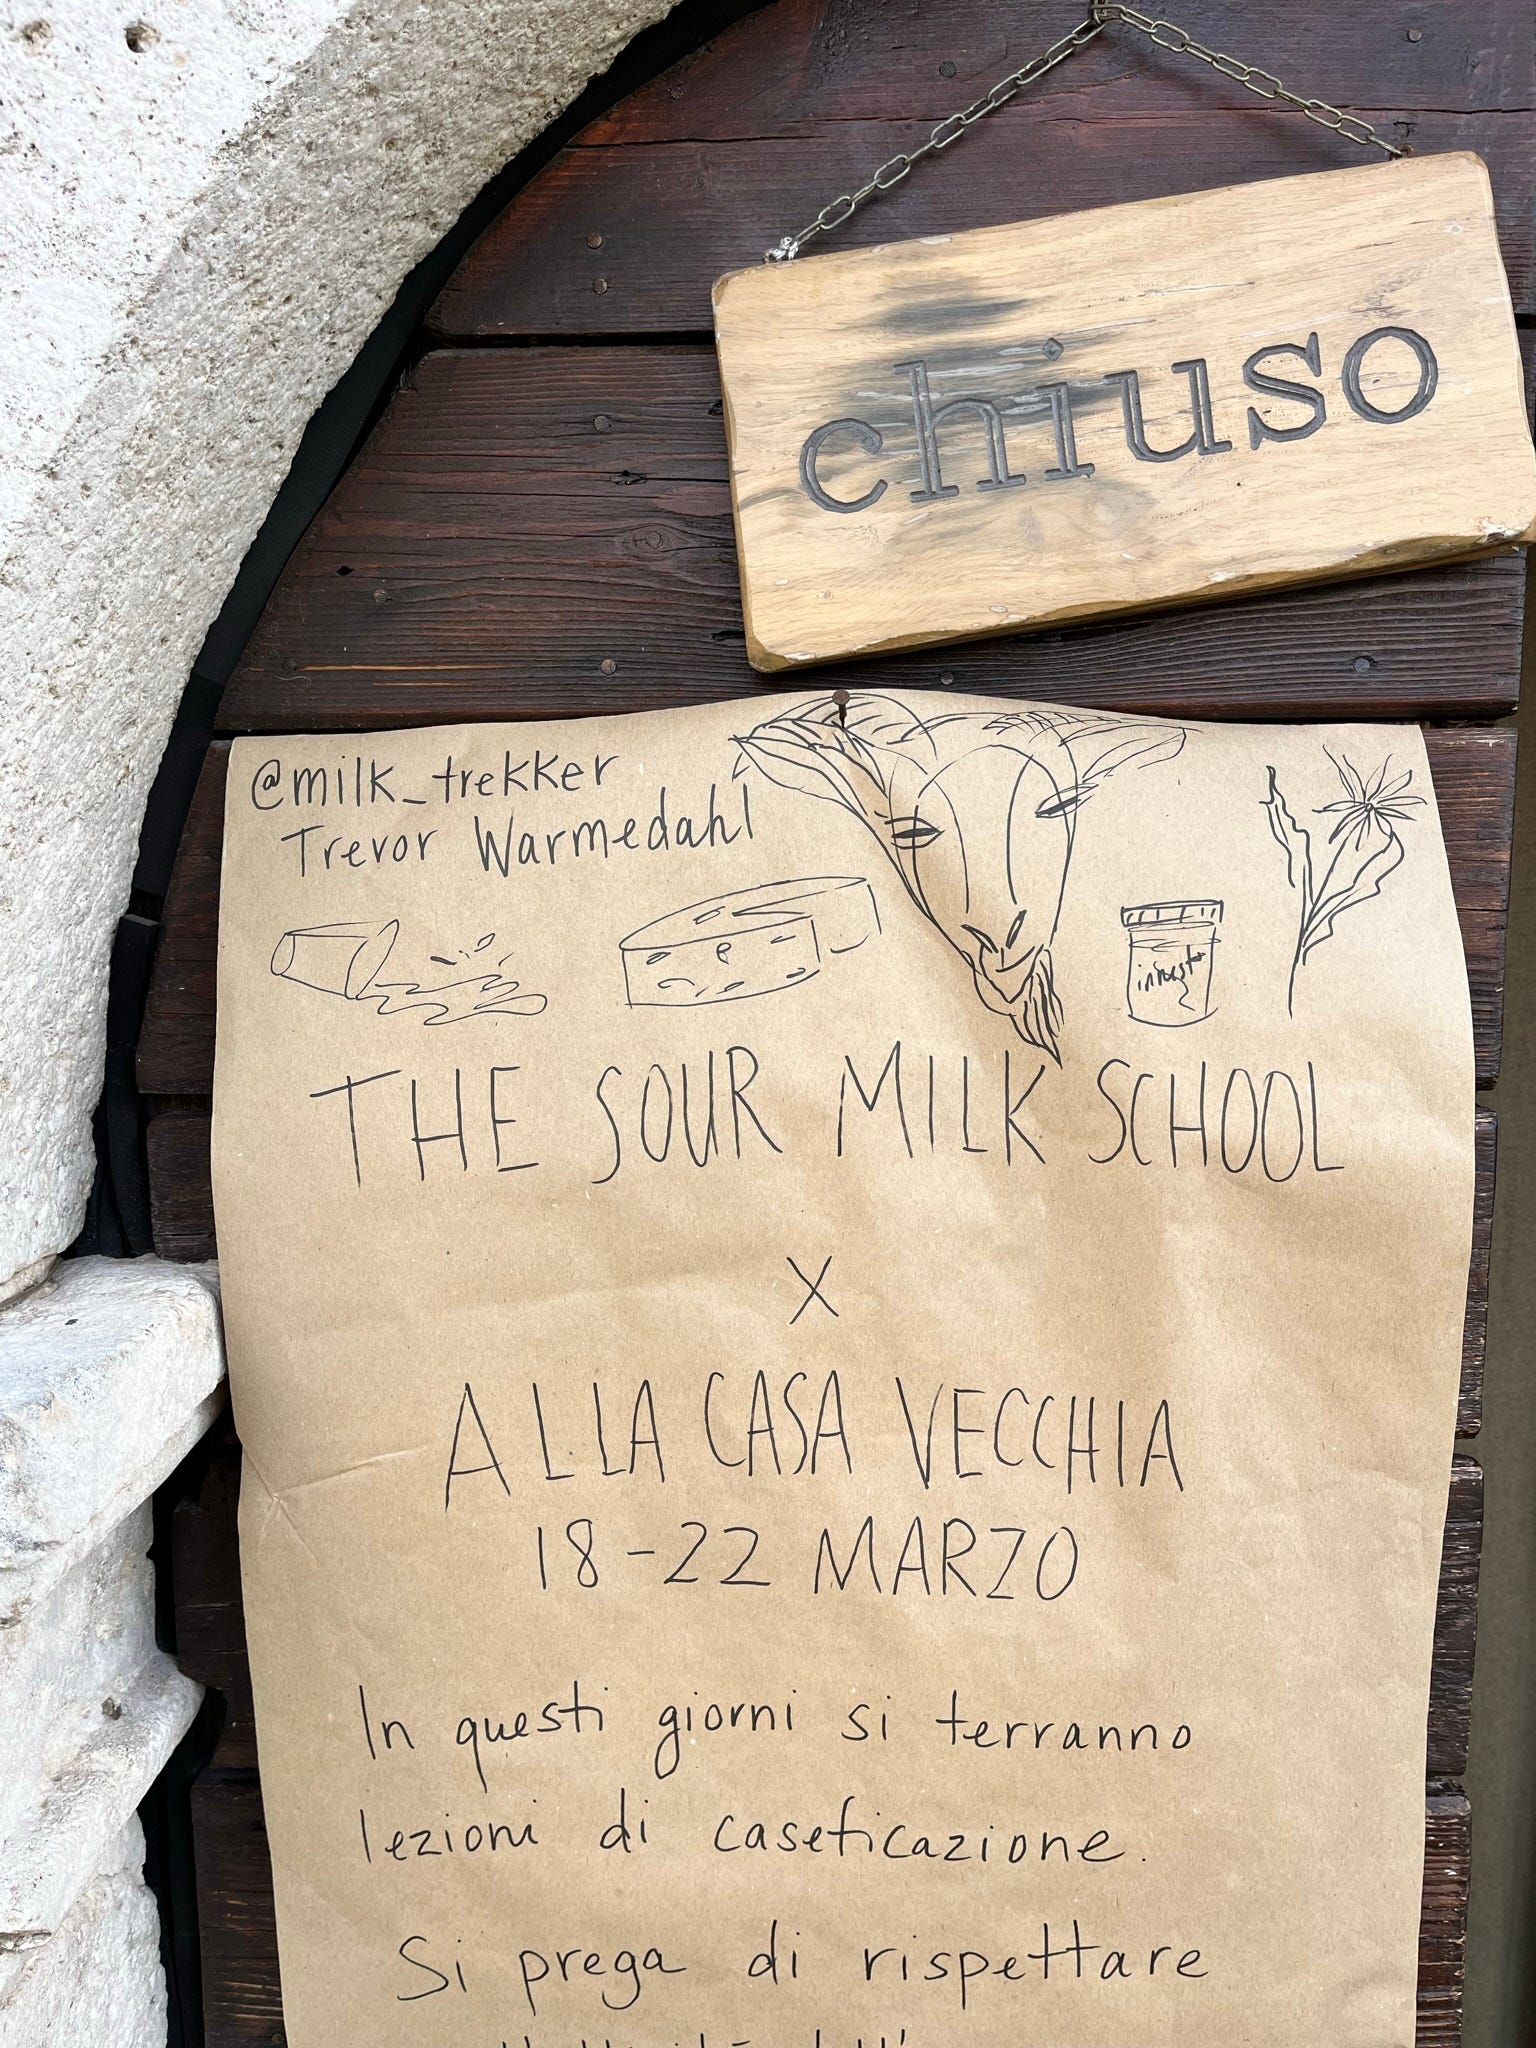 chiuso
@milk_trekker
Trevor Warmedahl
THE SOUR MILK SCHOOL
X
ALLA CASA VECCHIA
18-22 MARZO
In questi giorni si terranno
lezioni di caseficazione.
Si prega di rispettare